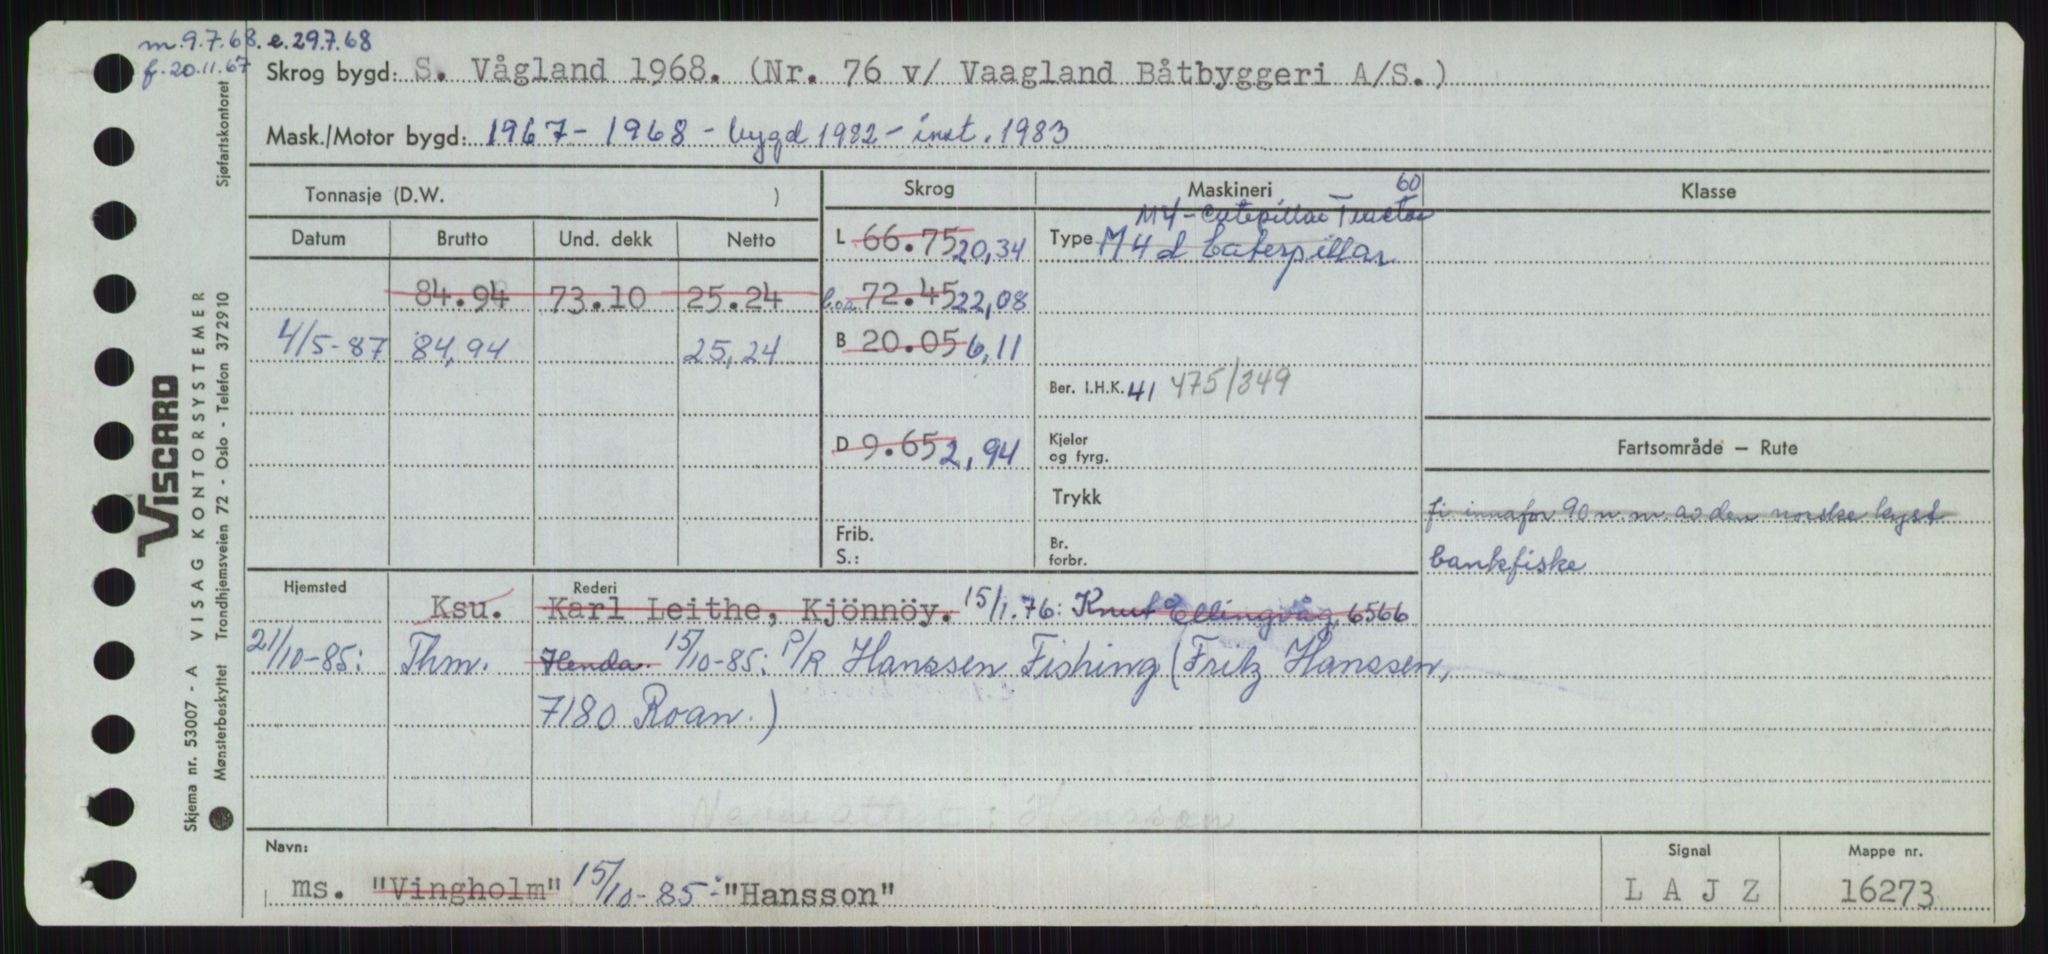 m.9.7.68. e.29.7.68
f.20.11.67
Skrog bygd: S. Vågland 1968. (Nr. 76 v/ Vaagland Båtbyggeri A/S.)
Mask./Motor bygd: 1967 - 1968 - bygd 1982 - inst. 1983
Tonnasje (D.W. ) Skrog Maskineri 60 Klasse
M4 - Catepillar Tractor
Datum Brutto Und. dekk Netto L 66.75 20,34 Type M4 d Caterpillar
84.94 73.10 25.24 loa 72.45 22,08
4/5-87 84,94 25,24 B 20.05 6,11
Ber. I.H.K. 41 475/349
D 9.65 2,94 Kjeler
og fyrg.
Fartsområde – Rute
Trykk
fi innafor 90 n.m. av den norske kyst
Frib. Br.
S.: forbr.
bankfiske
Hjemsted Rederi
Ksu. Karl Leithe, Kjönnöy. 15/1.76: Knut Ellingvåg, 6566
21/10-85: Thm. Henda. 15/10-85: P/R Hanssen Fishing (Fritz Hanssen,
7180 Roan.)
Navn:
ms. "Vingholm" 15/10-85: "Hansson"
Signal
L A J Z
Mappe nr.
16273
Sjøfartskontoret
VISCARD
Skjema nr. 53007 - A VISAG KONTORSYSTEMER
Mønsterbeskyttet Trondhjemsveien 72 - Oslo - Telefon 372910